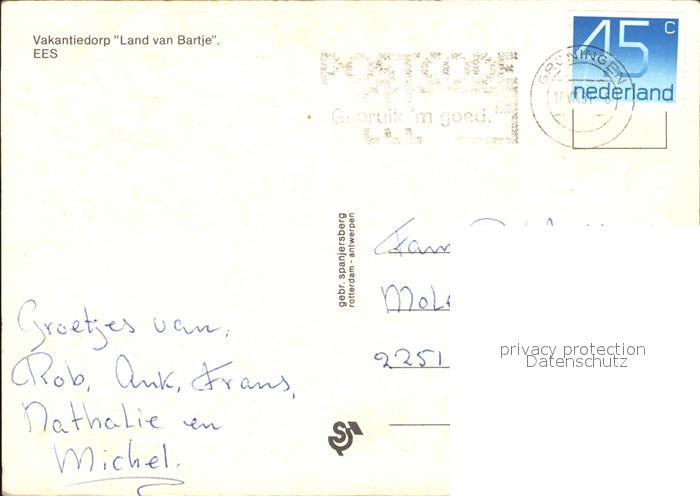 Vakantiedorp "Land van Bartje".
EES
45 c
nederland
GRONINGEN
Gebruik 'm goed.
gebr. spanjersberg
rotterdam - antwerpen
Fam
2251
privacy protection
Datenschutz
Groetjes van,
Rob, Ank, Frans,
Nathalie en
Michel.